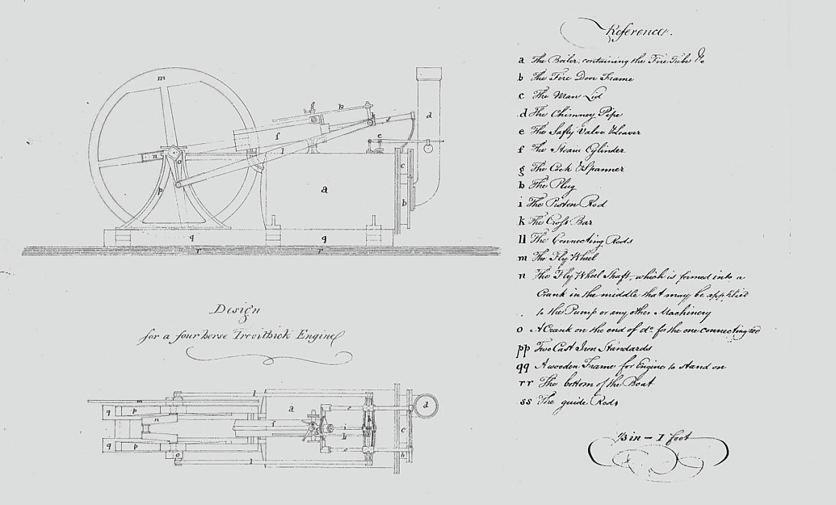 Reference.
a The Boiler, containing the Fire Tube &c
b The Fire Door Frame
c The Man Lid
d The Chimney Pipe
e The Safty Valve &
f The Steam Cylinder
g The Cock & Spanner
h The Plug
i The Piston Rod
k The Cross Bar
ll The Connecting Rods
m The Fly Wheel
n The Fly Wheel Shaft, which is formed into a
Crank in the middle that may be applied
to the Pump or any other Machinery
o A Crank on the end of do. for the one connecting rod
pp Two Cast Iron Standards
qq A wooden Frame for Engine to stand on
rr The bottom of the Boat
ss The guide Rods
in = 1 foot
m
g
k
d
e
f
n
l
c
a
b
p
q q
r r
Design
for a four horse Trevithick Engine
l
m
q p
n
a
f
i
k
c
d
q p
o
l
b